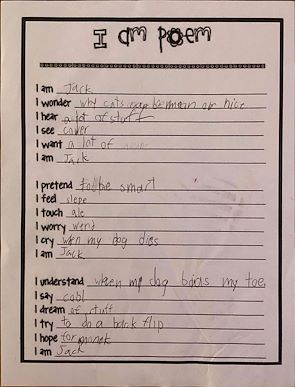 I am poem
I am Jack
I wonder why cats can be mean or nice
I hear a lot of stuff
I see
I want a lot of
I am Jack
I pretend to be smart
I feel
I touch
I worry
I cry when my dog dies
I am Jack
I understand when my dog my toe
I say
I dream of stuff
I try to do a back flip
I hope for
I am Jack